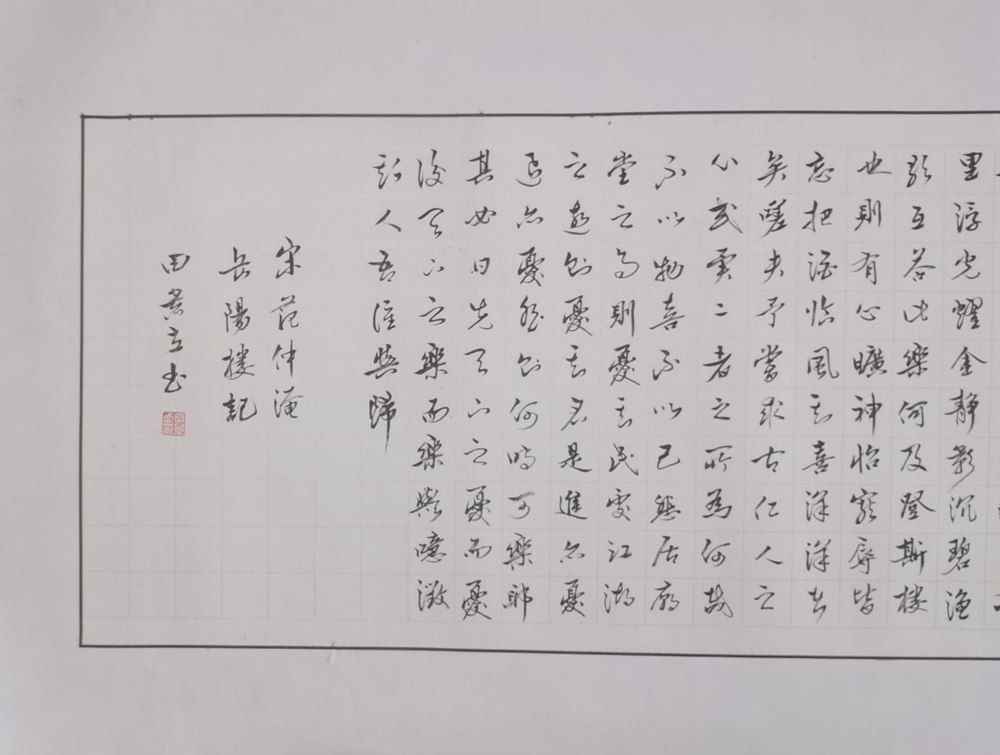 里浮光耀金静影沉碧渔
歌互答此樂何及登斯楼
也則有心曠神怡寵辱皆
忘把酒临風其喜洋洋者
矣嗟夫予嘗求古仁人之
心或異二者之所為何哉
不以物喜不以己悲居廟
堂之高則憂其民處江湖
之遠則憂其君是進亦憂
退亦憂然則何時可樂耶
其必曰先天下之憂而憂
後天下之樂而樂與噫微
斯人吾誰與歸
宋范仲淹
岳陽楼記
田景立书